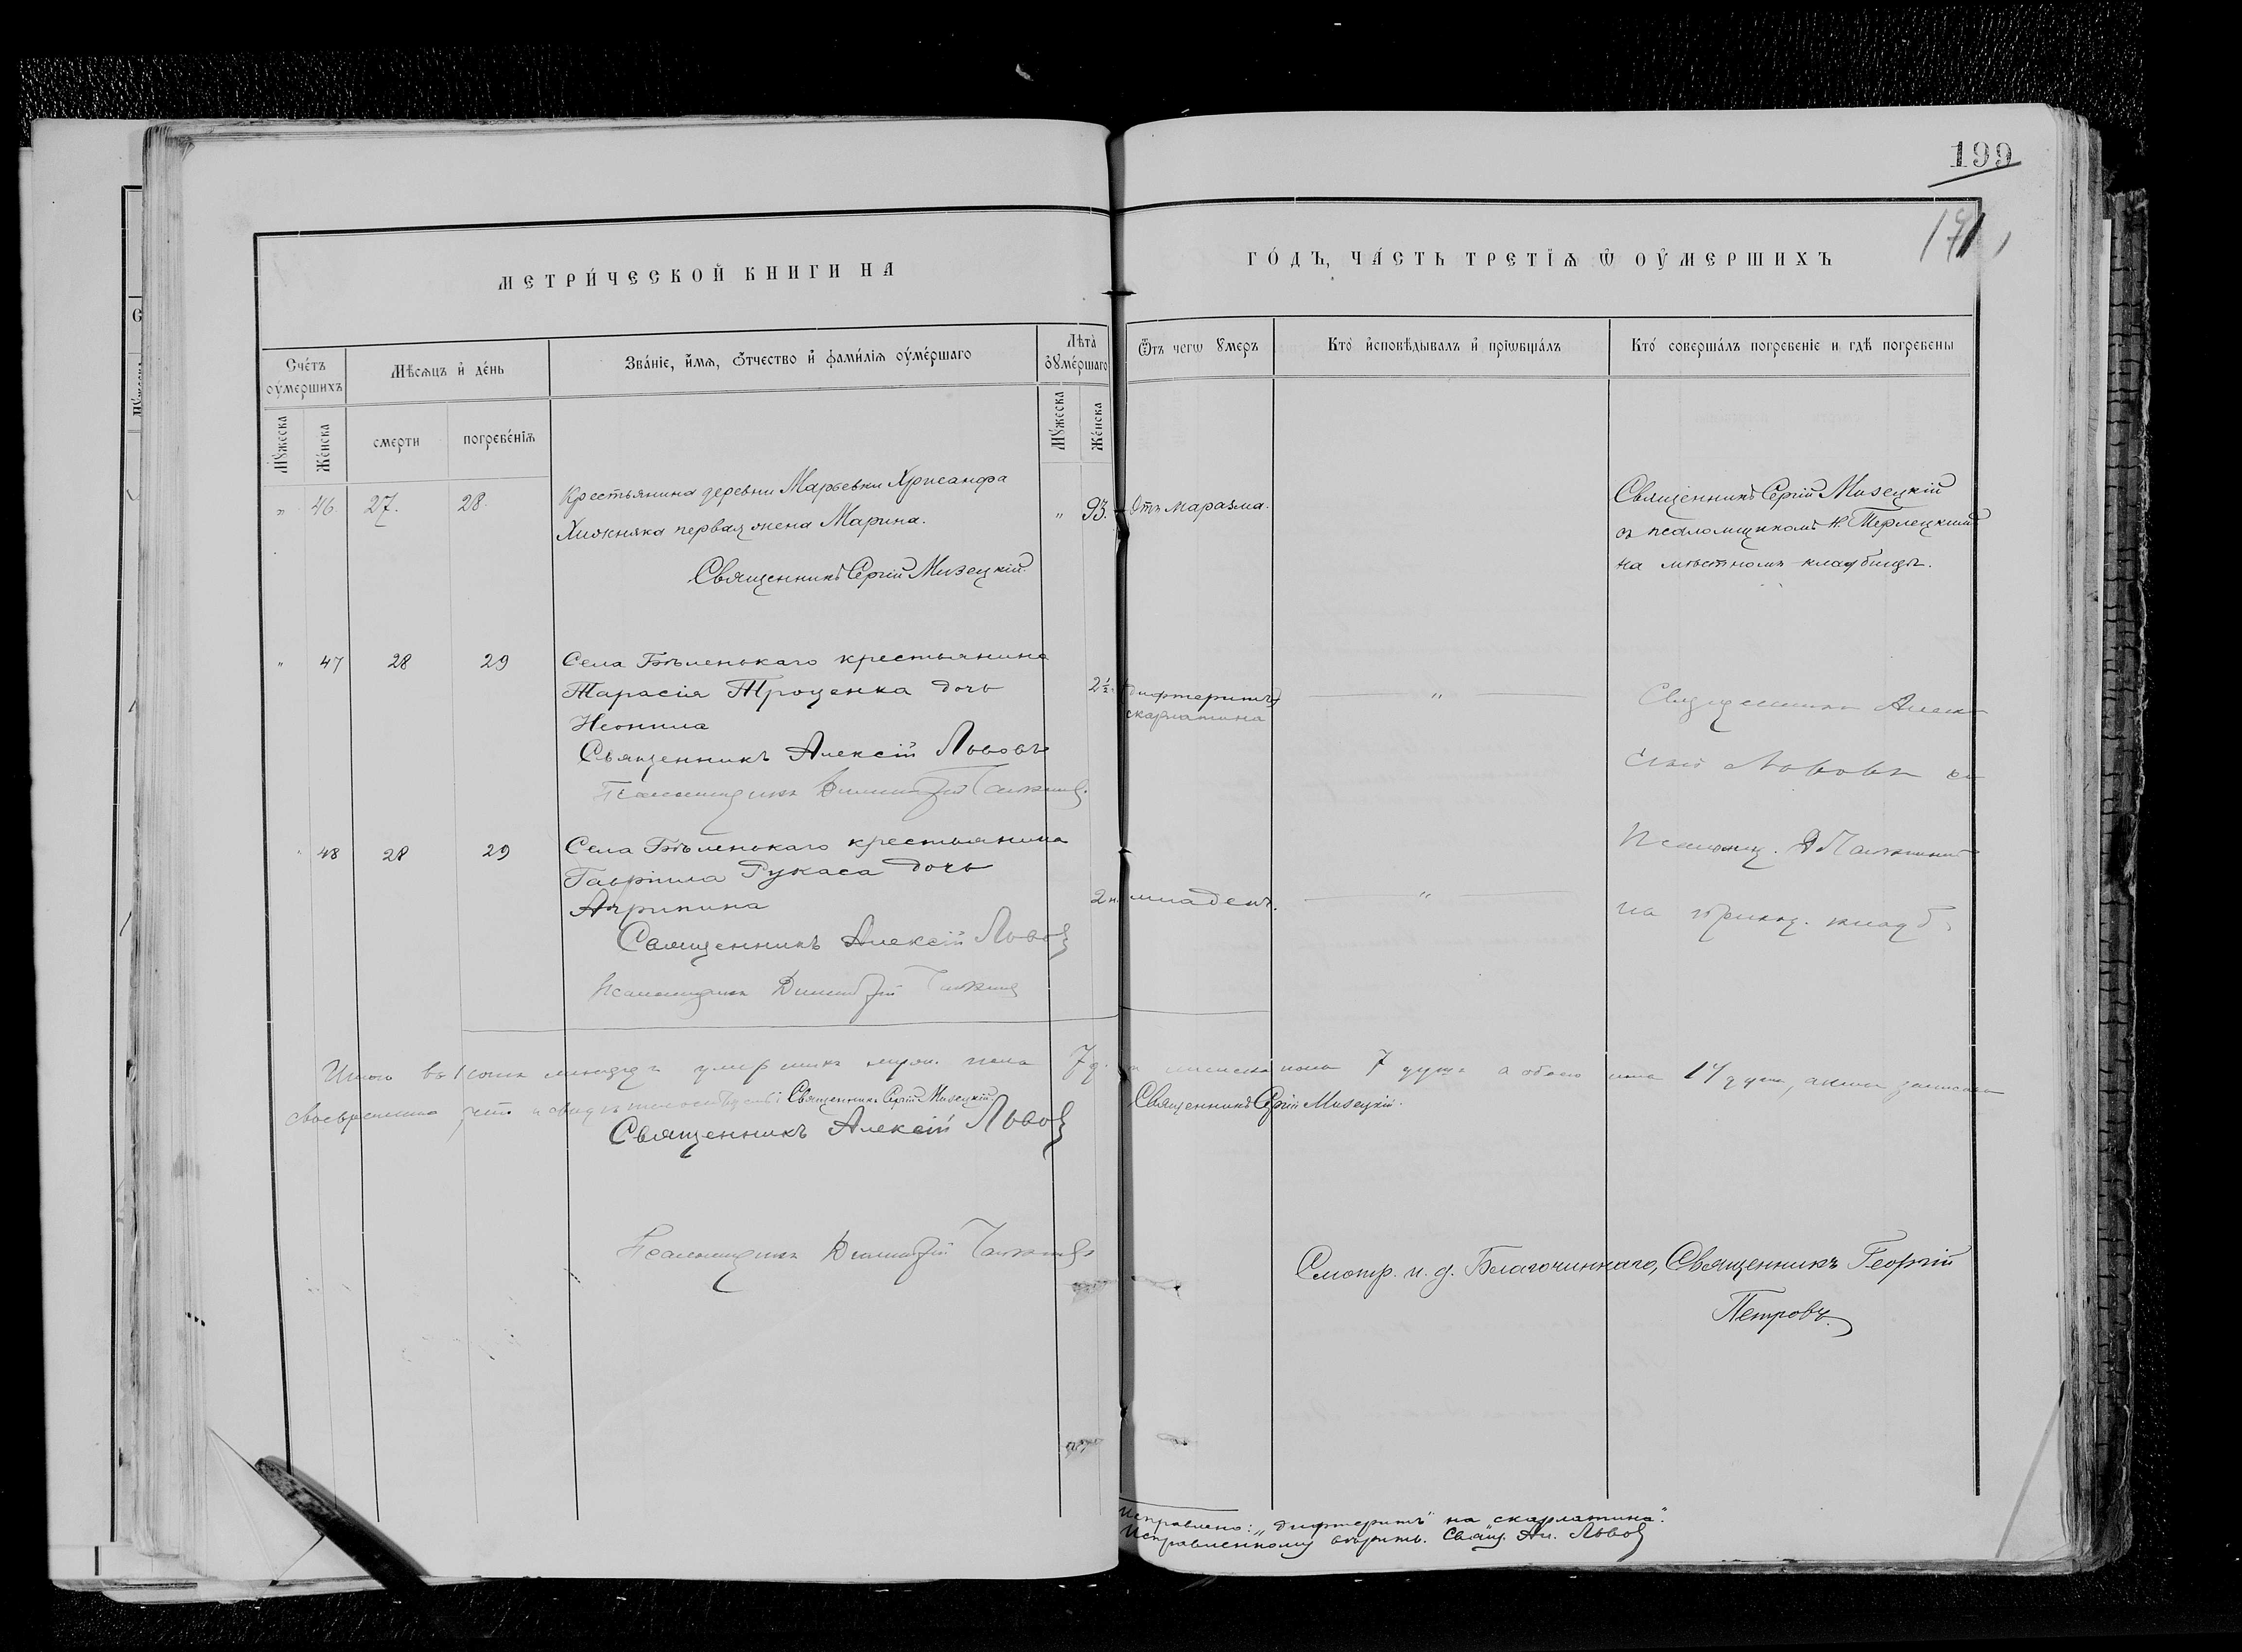 199
191
МЕТРИ́ЧЕСКОЙ КНИГИ НА
ГО́ДЪ, ЧА́СТЬ ТРЕТІѦ Ѿ ОУ҆МЕРШИХЪ
Сче́тъ оу҆ме́ршихъ
Мѣ́сѧцъ и҆ де́нь
Зва́ніе, и҆́мѧ, ѻ҆́тчество и҆ фами́лїѧ оу҆ме́ршаго
Лѣта̀ оу҆ме́ршаго
Ѿъ чегѡ ᲂумеръ
Кто̀ и҆сповѣ́дывалъ и҆ прїѡбща́лъ
Кто́ соверша́лъ погребеніе и гдѣ погребены
Мꙋ́жеска
Же́нска
смерти
погребе́нїѧ
Мꙋ́жеска
Же́нска
" 46. 27. 28.
Крестьянина деревни Марьевки Хрисанфа
Хижняка первая жена Марина.
Священникъ Сергій Мизецкій.
" 93.
Отъ маразма.
Священникъ Сергій Мизецкій
съ псаломщикомъ Н. Терлецкимъ
на мѣстномъ кладбищѣ.
" 47 28 29
Села Бѣленькаго крестьянина
Тарасія Троценка дочь
Неонила
Священникъ Алексій Львовъ
Псаломщикъ Димитрій
2½
(дифтеритъ)
скарлатина
"
Священникъ Алек
сѣй Львовъ съ
Псаломщ. Д
на приход. кладб.
" 48 28 29
Села Бѣленькаго крестьянина
Гавріила Рукаса дочь
Агрипина
Священникъ Алексій Львовъ
Псаломщикъ Димитрій
2 н.
младен.
"
Итого въ Іюнѣ мѣсяцѣ умершихъ муж. пола 7 д. а женска пола 7 душъ а обоего пола 14 душъ, акты записаны
своевременно Священникъ Сергій Мизецкій.
Священникъ Сергій Мизецкій.
Священникъ Алексій Львовъ
Псаломщикъ Димитрій
Смотр. и. д. Благочиннаго, Священникъ Георгій
Петровъ.
Исправлено: „дифтеритъ" на „скарлатина".
Исправленному вѣрить. Свящ. Ал. Львовъ